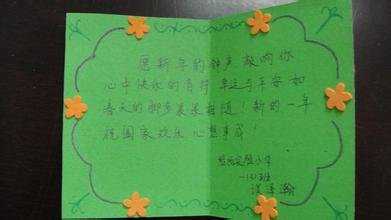 愿新年的钟声敲响你
心中快乐的音符 幸运与平安 如
春天的脚步紧紧相随！新的一年
祝国家欢乐 心想事成！
实验小学
一(3)班